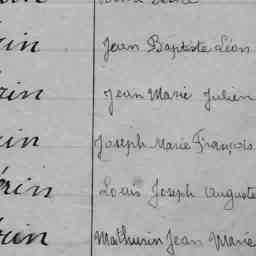 rin Jean Baptiste Léon
rin Jean Marie Julien
rin Joseph Marie François
rin Louis Joseph Auguste
rin Mathurin Jean Marie